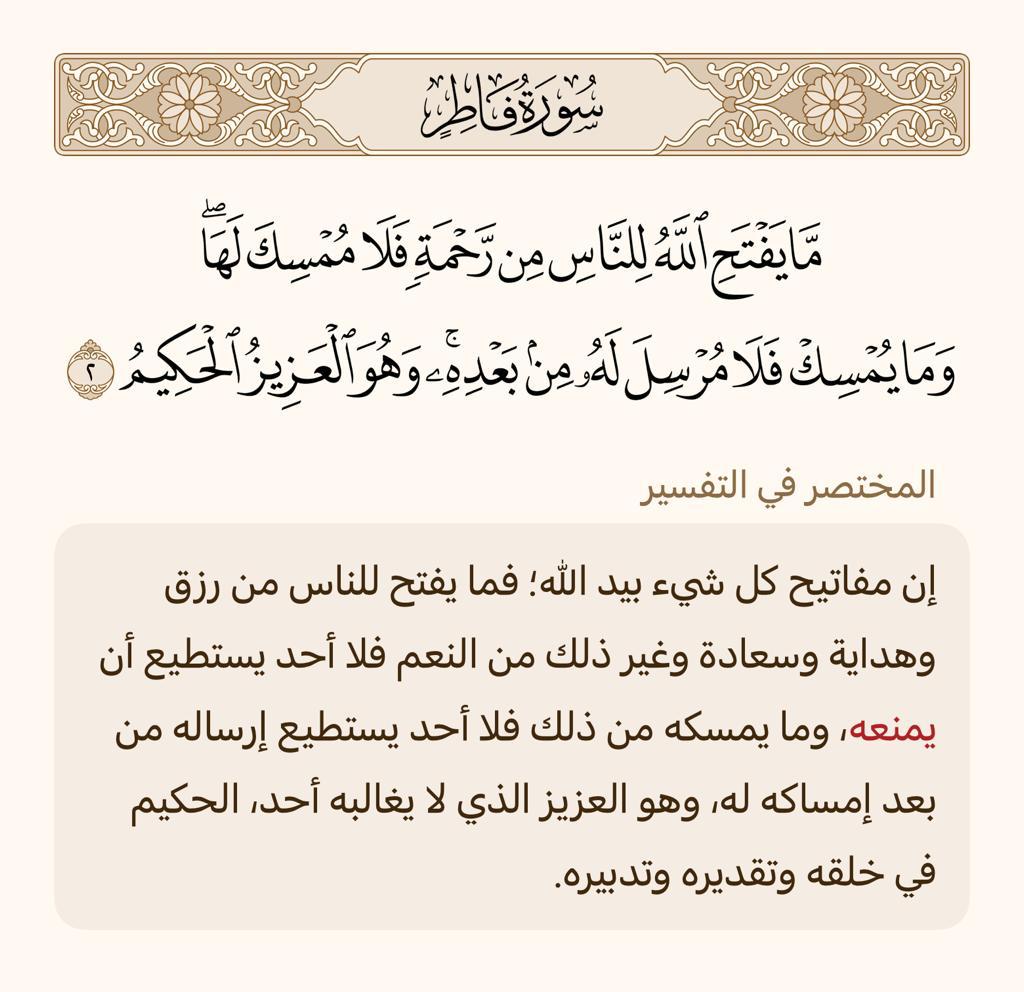 سُورَةُ فَاطِرٍ
مَّا يَفْتَحِ ٱللَّهُ لِلنَّاسِ مِن رَّحْمَةٍ فَلَا مُمْسِكَ لَهَاۖ
وَمَا يُمْسِكْ فَلَا مُرْسِلَ لَهُۥ مِنۢ بَعْدِهِۦۚ وَهُوَ ٱلْعَزِيزُ ٱلْحَكِيمُ ٢
المختصر في التفسير
إن مفاتيح كل شيء بيد الله؛ فما يفتح للناس من رزق
وهداية وسعادة وغير ذلك من النعم فلا أحد يستطيع أن
يمنعه، وما يمسكه من ذلك فلا أحد يستطيع إرساله من
بعد إمساكه له، وهو العزيز الذي لا يغالبه أحد، الحكيم
في خلقه وتقديره وتدبيره.